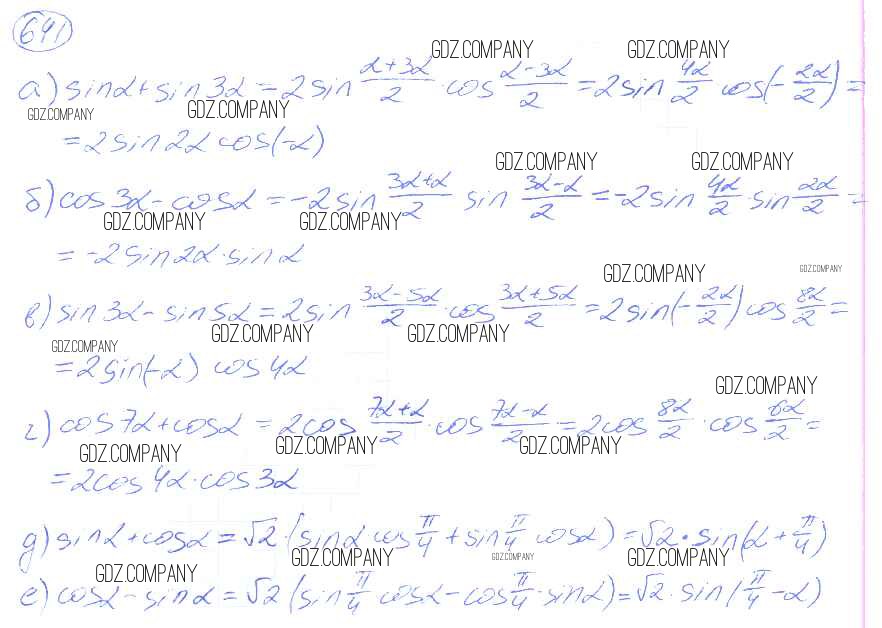 641
GDZ.COMPANY GDZ.COMPANY
а) sinα + sin3α = 2sin (α+3α)/2 · cos (α-3α)/2 = 2sin 4α/2 cos(-2α/2) =
GDZ.COMPANY GDZ.COMPANY
= 2sin2α cos(-α)
GDZ.COMPANY GDZ.COMPANY
б) cos3α - cosα = -2sin (3α+α)/2 sin (3α-α)/2 = -2sin 4α/2 · sin 2α/2 =
GDZ.COMPANY GDZ.COMPANY
= -2sin2α · sinα
GDZ.COMPANY GDZ.COMPANY
в) sin3α - sin5α = 2sin (3α-5α)/2 · cos (3α+5α)/2 = 2sin(-2α/2) cos 8α/2 =
GDZ.COMPANY GDZ.COMPANY GDZ.COMPANY
= 2sin(-α) cos4α
GDZ.COMPANY
г) cos7α + cosα = 2cos (7α+α)/2 · cos (7α-α)/2 = 2cos 8α/2 · cos 6α/2 =
GDZ.COMPANY GDZ.COMPANY GDZ.COMPANY
= 2cos4α · cos3α
д) sinα + cosα = √2 · (sinα cos π/4 + sin π/4 cosα) = √2 · sin(α + π/4)
GDZ.COMPANY GDZ.COMPANY GDZ.COMPANY GDZ.COMPANY
е) cosα - sinα = √2 (sin π/4 cosα - cos π/4 · sinα) = √2 · sin(π/4 - α)